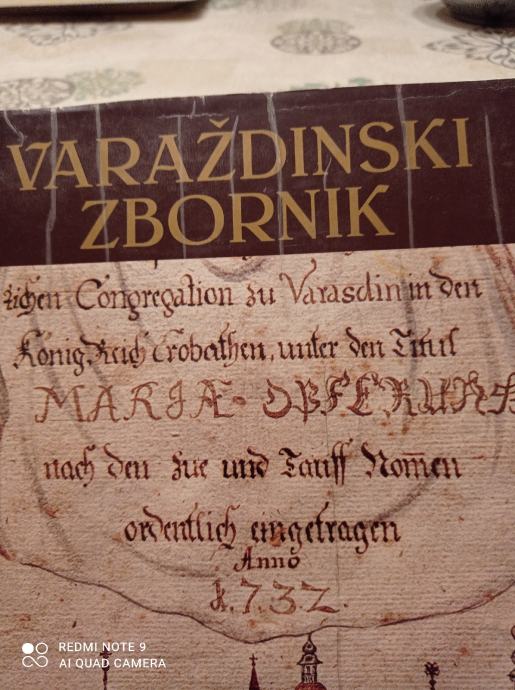 VARAŽDINSKI
ZBORNIK
Congregation zu Varasdin in den
König Reich Crobathen, unter den Titul
MARIÆ- OPFERUNG
nach den Zue und Tauff Nomen
ordentlich eingetragen
Anno
1.7.3.2.
REDMI NOTE 9
AI QUAD CAMERA